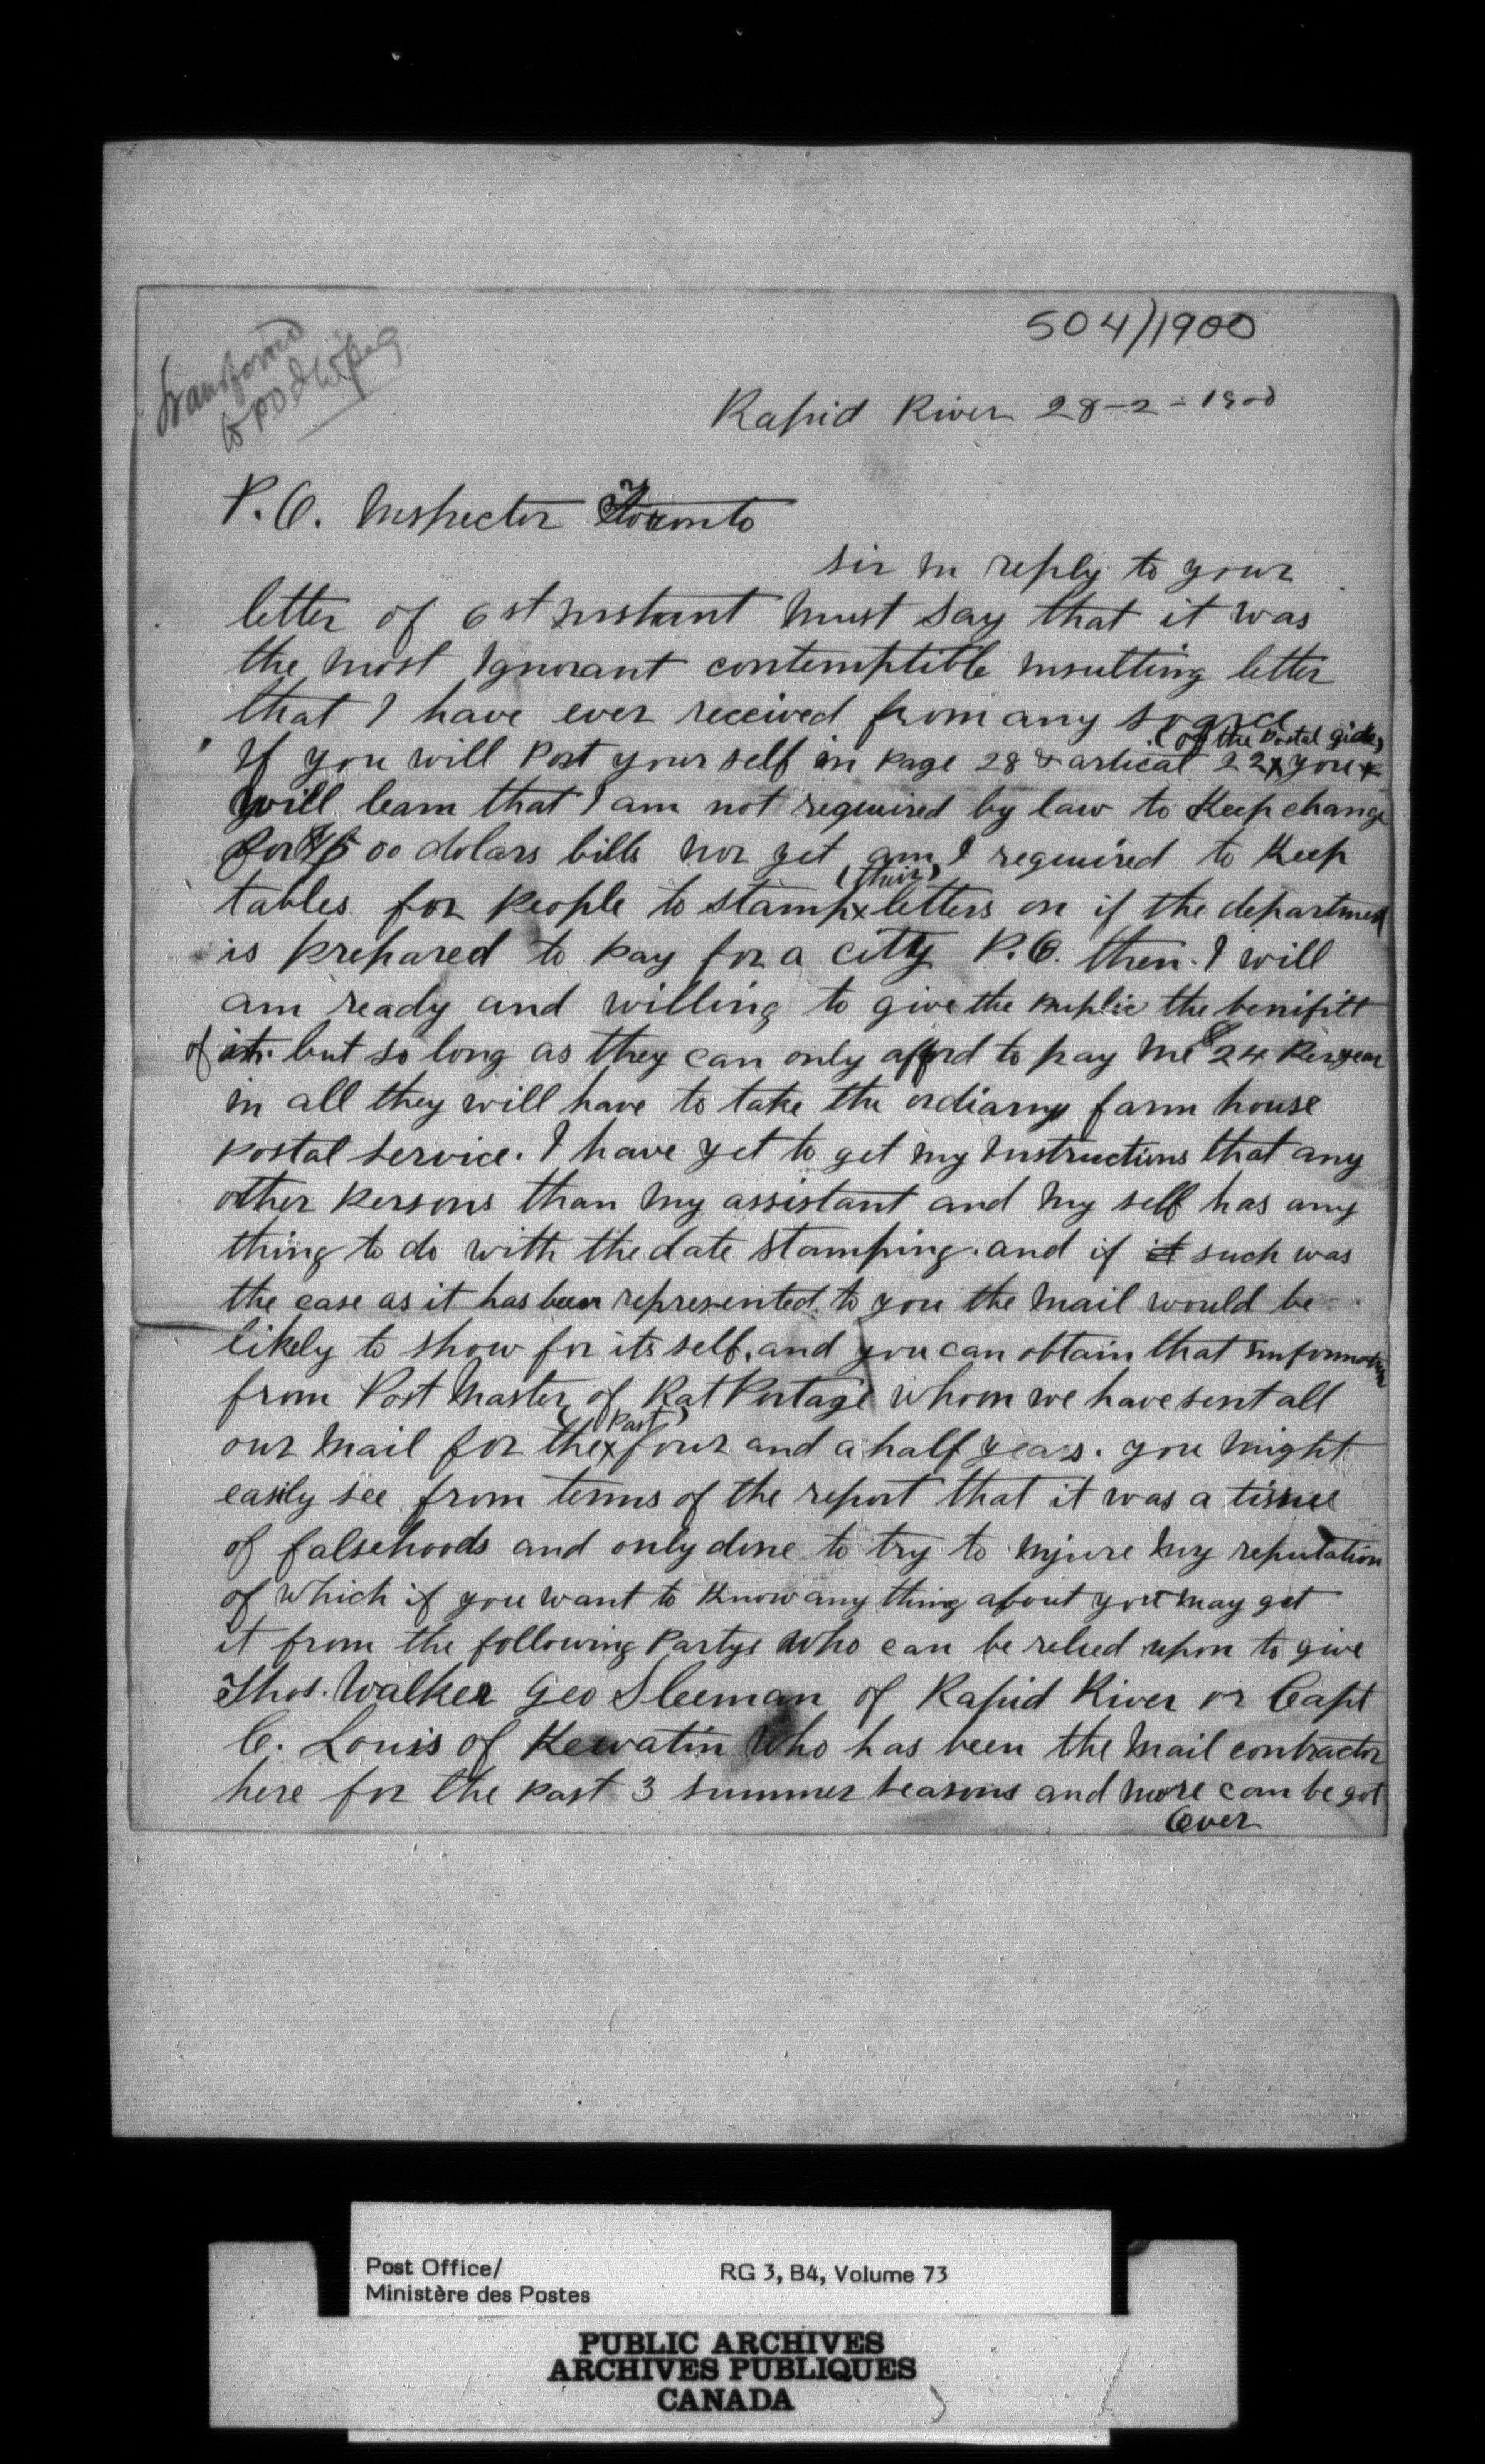 504/1900
Transferred
to POD Wpeg
Rapid River 28-2-1900
P.O. Inspector Toronto
Sir In reply to your
letter of 6st Instant must say that it was
the most Ignorant contemptible insulting letter
that I have ever received from any
(of the Postal gide)
If you will Post your self in page 28 & artical 22x you
will learn that I am not required by law to Keep change
for 00 dolars bills nor yet am I required to Keep
(their)
tables for people to stampx letters on if the department
is prepared to pay for a citty P.O. then I will
am ready and willing to give the puplic the benifitt
of it. but so long as they can only afford to pay me $24 per year
in all they will have to take the ordiarny farm house
postal service. I have yet to get my Instructions that any
other persons than my assistant and my self has any
thing to do with the date stamping. and if it such was
the case as it has been represented to you the mail would be
likely to show for its self. and you can obtain that information
from Post Master of Rat Portage whom we have sent all
(past)
our mail for thex four and a half years. you might
easily see from terms of the report that it was a tissue
of falsehoods and only done to try to injure my reputation
of which if you want to Know any thing about you may get
it from the following Partys who can be relied upon to give
Thos. Walker Geo Sleeman of Rapid River or Capt
C. Louis of Kewatin who has been the mail contractor
here for the past 3 summer seasons and more can be got
Over
Post Office/
Ministère des Postes
RG 3, B4, Volume 73
PUBLIC ARCHIVES
ARCHIVES PUBLIQUES
CANADA